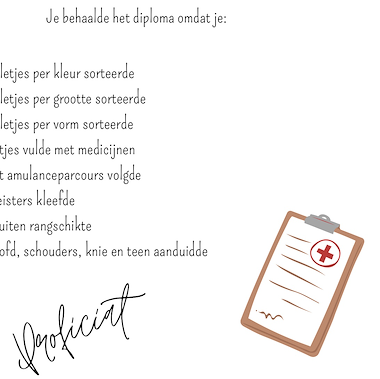 Je behaalde het diploma omdat je:
letjes per kleur sorteerde
letjes per grootte sorteerde
letjes per vorm sorteerde
tjes vulde met medicijnen
t amulanceparcours volgde
eisters kleefde
uiten rangschikte
ofd, schouders, knie en teen aanduidde
Proficiat